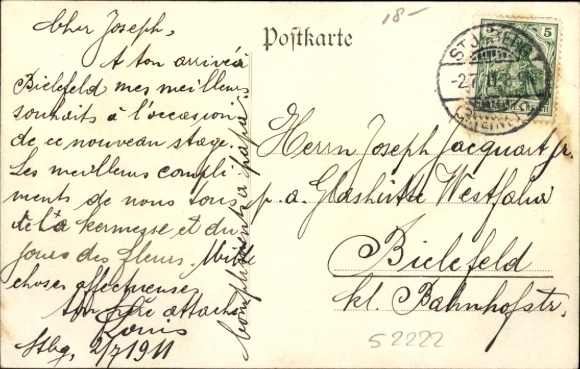 Cher Joseph,
A ton arrivée à
Bielefeld mes meilleurs
souhaits à l'occasion
de ce nouveau stage.
Les meilleurs compli
ments de nous tous
de la kermesse et du
jour des fleurs. Mille
choses affectueuses
ton frère attaché
Louis
Stbg, 2/7 1911
Compliments à papa.
18 –
Postkarte
5
Herrn Joseph Jacquart jr.
p. a. Glashütte Westfalia
Bielefeld
kl. Bahnhofstr.
52222